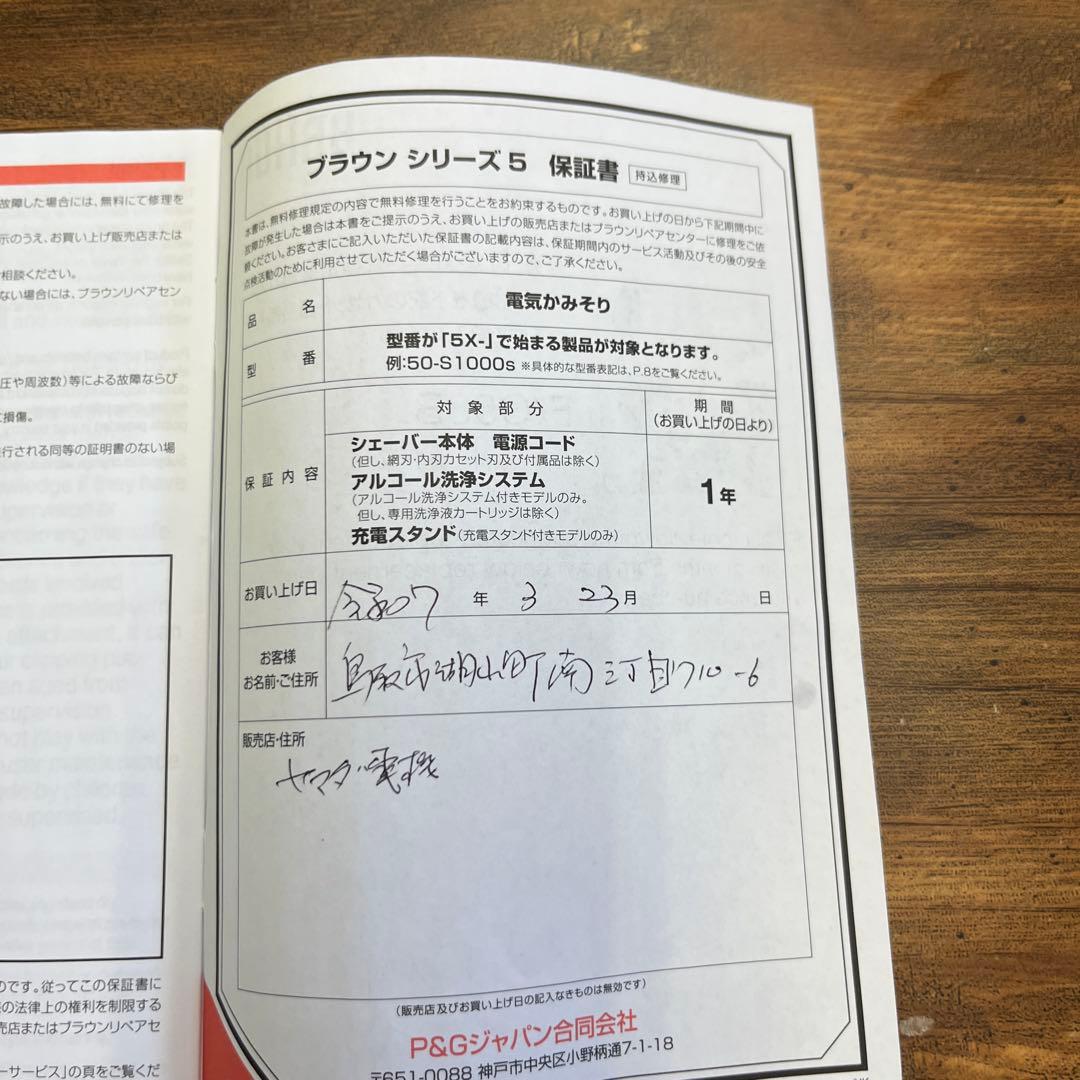 故障した場合には、無料にて修理を
示のうえ、お買い上げ販売店または
相談ください。
ない場合には、ブラウンリペアセン
圧や周波数)等による故障ならび
損傷。
行される同等の証明書のない場
のです。従ってこの保証書に
の法律上の権利を制限する
売店またはブラウンリペアセ
ーサービス」の頁をご覧くだ
ブラウン シリーズ5 保証書 持込修理
本書は、無料修理規定の内容で無料修理を行うことをお約束するものです。お買い上げの日から下記期間中に
故障が発生した場合は本書をご提示のうえ、お買い上げの販売店またはブラウンリペアセンターに修理をご依
頼ください。お客さまにご記入いただいた保証書の記載内容は、保証期間内のサービス活動及びその後の安全
点検活動のために利用させていただく場合がございますので、ご了承ください。
品名 電気かみそり
型番 型番が「5X-」で始まる製品が対象となります。
例:50-S1000s ※具体的な型番表記は、P.8をご覧ください。
保証内容
対象部分
期間
(お買い上げの日より)
シェーバー本体 電源コード
(但し、網刃・内刃カセット刃及び付属品は除く)
アルコール洗浄システム
(アルコール洗浄システム付きモデルのみ。
但し、専用洗浄液カートリッジは除く)
充電スタンド(充電スタンド付きモデルのみ)
1年
お買い上げ日 令和07年 3 23月 日
お客様
お名前・ご住所
鳥取市湖山町南三丁目710-6
販売店・住所
ヤマダ電機
(販売店及びお買い上げ日の記入なきものは無効です)
P&Gジャパン合同会社
〒651-0088 神戸市中央区小野柄通7-1-18